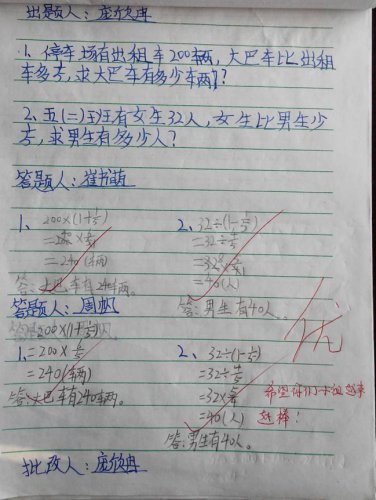 出题人：庞欣冉
1、停车场有出租车200辆，大巴车比出租
车多1/5，求大巴车有多少车辆？
2、五(二)班有女生32人，女生比男生少
1/5，求男生有多少人？
答题人：崔书萌
1、200×(1+1/5)
=200×6/5
=240(辆)
答：大巴车有240辆。
2、32÷(1-1/5)
=32÷4/5
=32×5/4
=40(人)
答：男生有40人。
答题人：周帆
1、200×(1+1/5)
=200×6/5
=240(辆)
答：大巴车有240辆。
2、32÷(1-1/5)
=32÷4/5
=32×5/4
=40(人)
答：男生有40人。
优
希望你们小组越来
越棒！
批改人：庞欣冉